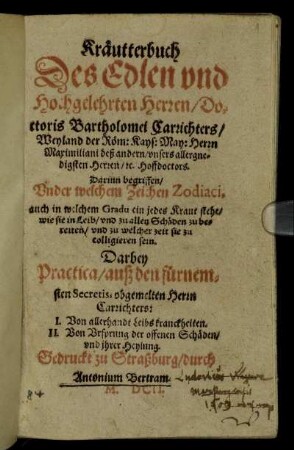 Kräutterbuch
Des Edlen vnd
Hochgelehrten Herren/ Do-
ctoris Bartholomei Carrichters/
Weyland der Röm: Kays: May: Herrn
Maximiliani deß andern/vnsers allergne-
digsten Herren/ ꝛc. Hoffdoctors.
Darinn begriffen/
Vnder welchem Zeichen Zodiaci,
auch in welchem Gradu ein jedes Kraut stehe/
wie sie in Leib/ vnd zu allen Schäden zu be-
reiten/ vnd zu welcher zeit sie zu
colligieren sein.
Darbey
Practica/ auß den fürnem-
sten Secretis, obgemelten Herrn
Carrichters:
I. Von allerhandt Leibs kranckheiten.
II. Von Vrsprung der offenen Schäden/
vnd jhrer Heylung.
Gedruckt zu Straßburg/ durch
Antonium Bertram.
M. DCII.
84